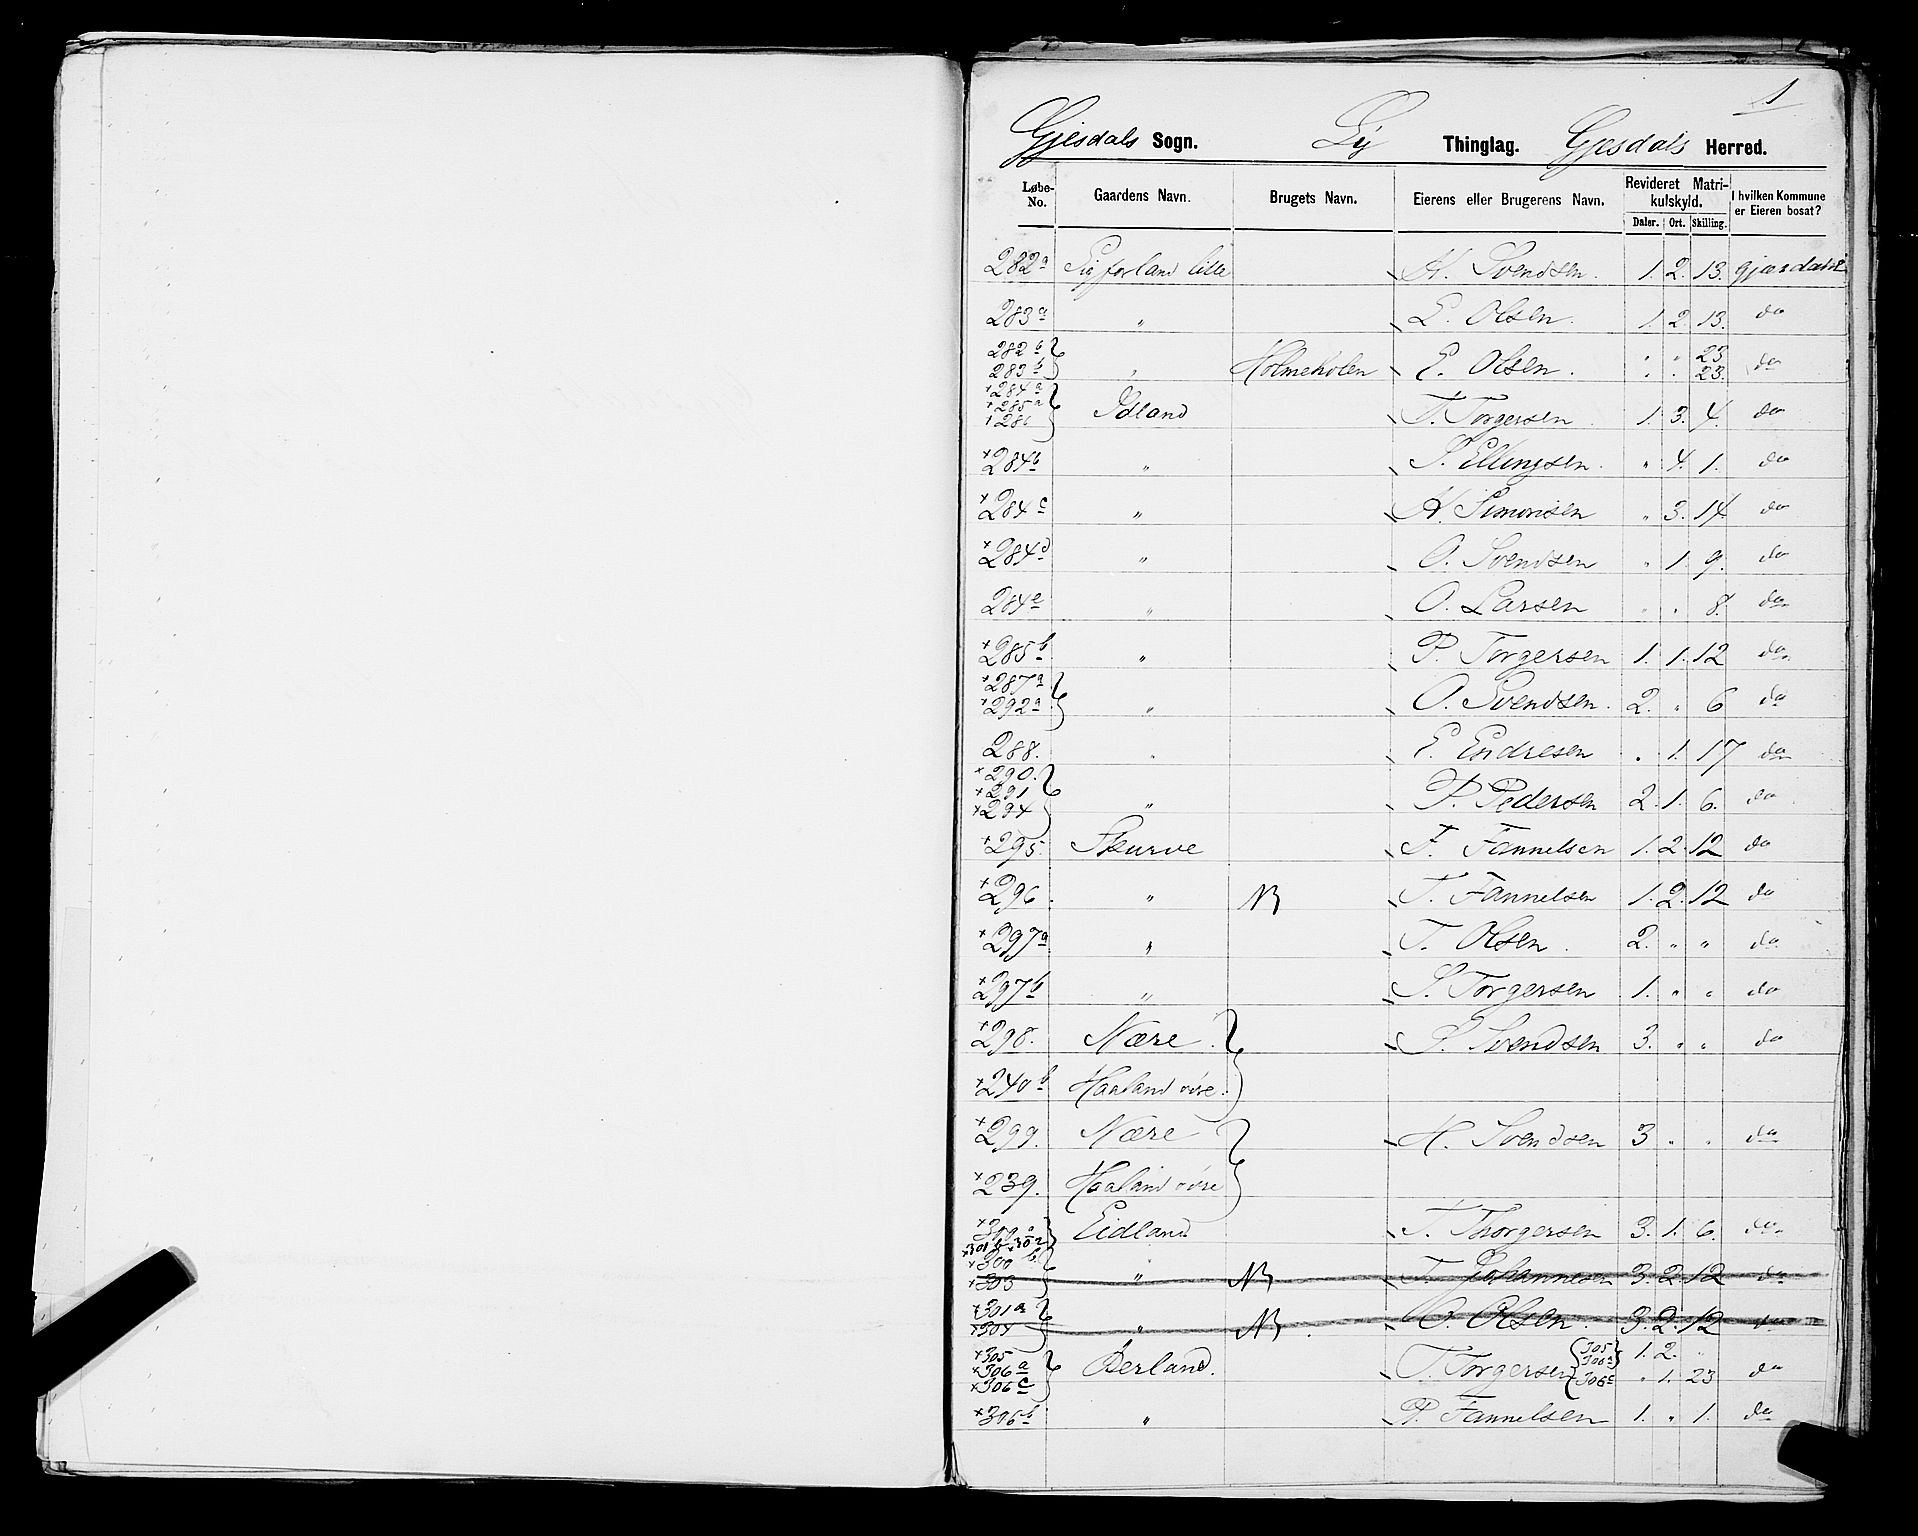 1
Gjesdals Sogn. Ly Thinglag. Gjesdals Herred.
Løbe-No. Gaardens Navn. Brugets Navn. Eierens eller Brugerens Navn. Revideret Matrikulskyld. I hvilken Kommune er Eieren bosat?
Daler. Ort. Skilling.
282a lille H. Svendsen. 1. 2. 13.
283a " E. Olsen. 1. 2. 13. do
282b 283b " Holmeholen E. Olsen. " " 23 23. do
+284a +285a +286 Idland T. Torgersen 1. 3. 4. do
+284b " S. Ellingsen. " 4. 1. do
+284c " H. Simonsen " 3. 14 do
+284d " O. Svendsen " 1. 9. do
284e " O. Larsen " " 8. do
+285b " P. Torgersen 1. 1. 12 do
+287a +292a " O. Svendsen. 2. " 6 do
288. " E. Endresen " 1. 17 do
+290. +291 +294 " P. Pedersen 2. 1. 6. do
+295. Skurve F. Fannelsen 1. 2. 12 do
+296 " NB T. Fannelsen 1. 2. 12 do
+297a " T. Olsen. 2. " " do
+297b " S. Torgersen 1. " " do
+298. Nære S. Svendsen 3. " " do
+240b Haaland øvre.
+299. Nære H. Svendsen 3 " " do
+239. Haaland øvre
+300a +301b +302 Eidland T. Thorgersen 3. 1. 6. do
+300b +303 " NB T. Johannesen 3. 2. 12 do
+301a +304 " NB O. Olsen. 3. 2. 12 do
+305 +306a +306c Berland. T. Torgersen {305 306a} 1. 2. " {306c " 1. 23 do
+306b " P. Fannelsen 1. " 1. do